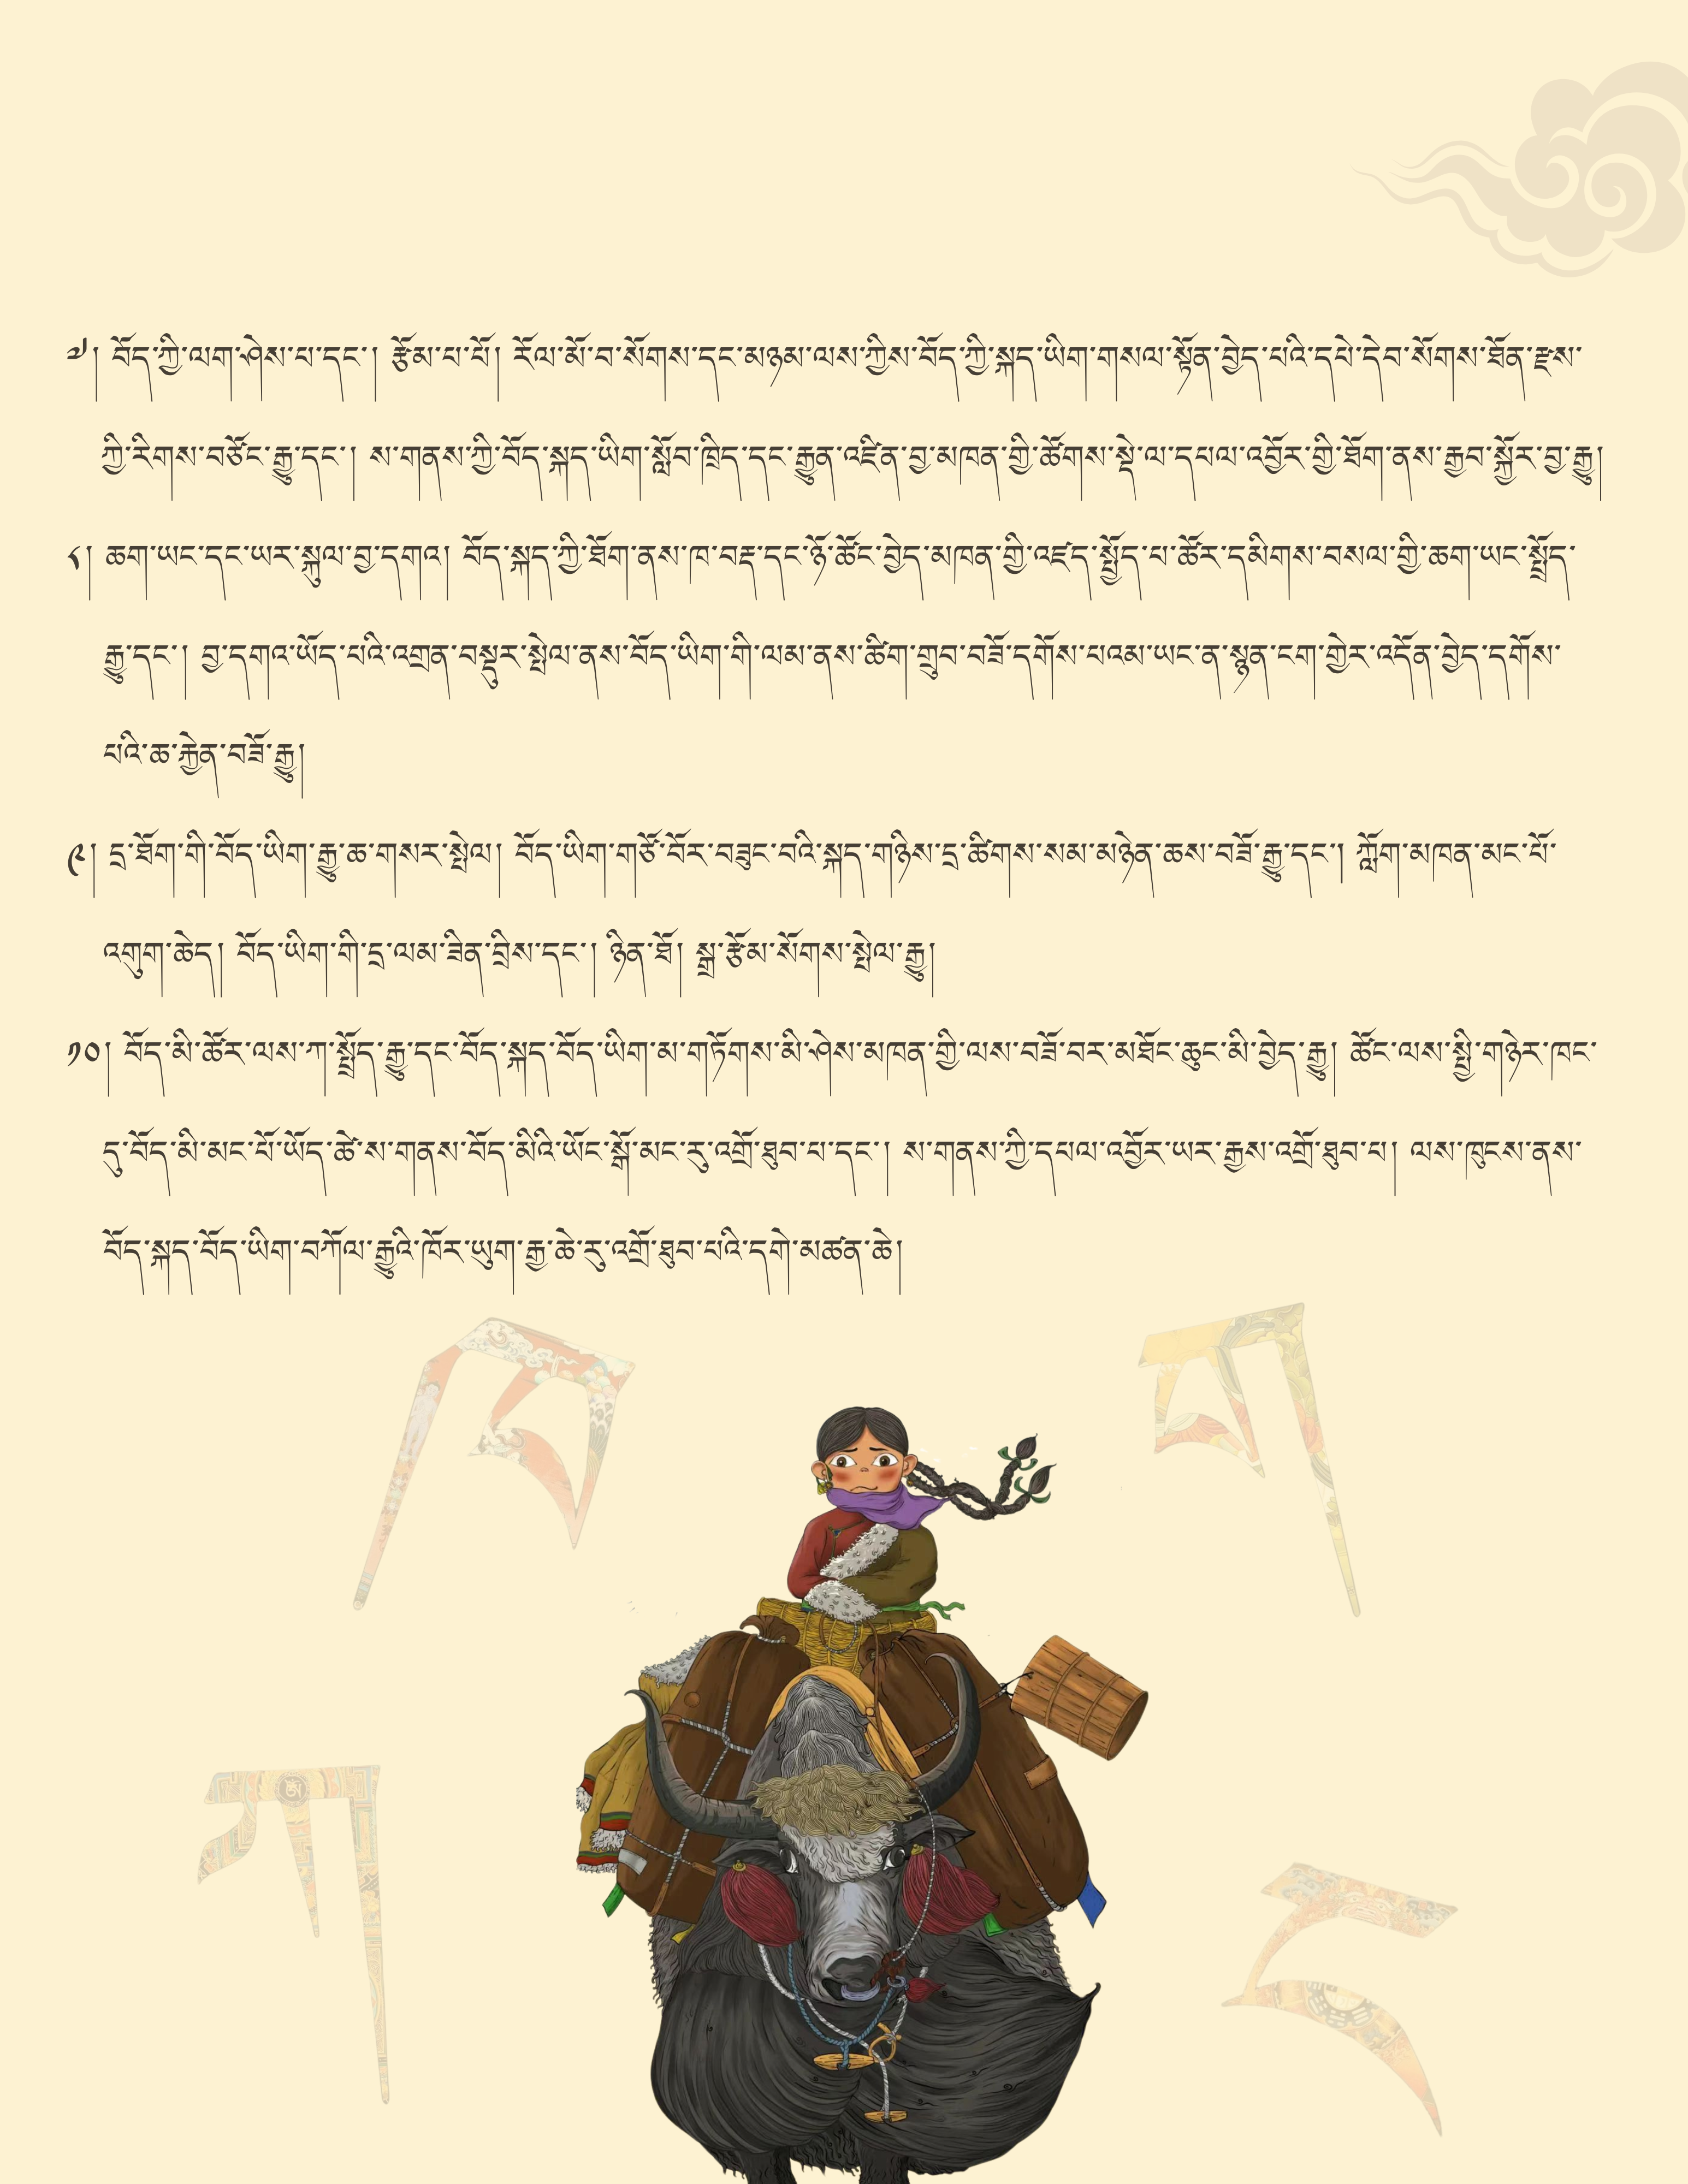 ༧། བོད་ཀྱི་ལག་ཤེས་པ་དང་། རྩོམ་པ་པོ། རོལ་མོ་བ་སོགས་དང་མཉམ་ལས་ཀྱིས་བོད་ཀྱི་སྐད་ཡིག་གསལ་སྟོན་བྱེད་པའི་དཔེ་དེབ་སོགས་ཐོན་རྫས་
ཀྱི་རིགས་བཙོང་རྒྱུ་དང་། ས་གནས་ཀྱི་བོད་སྐད་ཡིག་སློབ་ཁྲིད་དང་རྒྱུན་འཛིན་བྱ་མཁན་གྱི་ཚོགས་སྡེ་ལ་དཔལ་འབྱོར་གྱི་ཐོག་ནས་རྒྱབ་སྐྱོར་བྱ་རྒྱུ།
༨། ཆག་ཡང་དང་ཡར་སྐུལ་བྱ་དགའ། བོད་སྐད་ཀྱི་ཐོག་ནས་ཁ་བརྡ་དང་ཉོ་ཚོང་བྱེད་མཁན་གྱི་འཛད་སྤྱོད་པ་ཚོར་དམིགས་བསལ་གྱི་ཆག་ཡང་སྤྲོད་
རྒྱུ་དང་། བྱ་དགའ་ཡོད་པའི་འགྲན་བསྡུར་སྤེལ་ནས་བོད་ཡིག་གི་ལམ་ནས་ཚིག་གྲུབ་བཟོ་དགོས་པའམ་ཡང་ན་སྙན་ངག་གྱེར་འདོན་བྱེད་དགོས་
པའི་ཆ་རྐྱེན་བཟོ་རྒྱུ།
༩། དྲ་ཐོག་གི་བོད་ཡིག་རྒྱུ་ཆ་གསར་སྤེལ། བོད་ཡིག་གཙོ་བོར་བཟུང་བའི་སྐད་གཉིས་དྲ་ཚིགས་སམ་མཉེན་ཆས་བཟོ་རྒྱུ་དང་། ཀློག་མཁན་མང་པོ་
འགུག་ཆེད། བོད་ཡིག་གི་དྲ་ལམ་ཟིན་བྲིས་དང་། ཉིན་ཐོ། སྒྲ་རྩོམ་སོགས་སྤེལ་རྒྱུ།
༡༠། བོད་མི་ཚོར་ལས་ཀ་སྤྲོད་རྒྱུ་དང་བོད་སྐད་བོད་ཡིག་མ་གཏོགས་མི་ཤེས་མཁན་གྱི་ལས་བཟོ་བར་མཐོང་ཆུང་མི་བྱེད་རྒྱུ། ཚོང་ལས་སྤྱི་གཉེར་ཁང་
དུ་བོད་མི་མང་པོ་ཡོད་ཚེ་ས་གནས་བོད་མིའི་ཡོང་སྒོ་མང་རུ་འགྲོ་ཐུབ་པ་དང་། ས་གནས་ཀྱི་དཔལ་འབྱོར་ཡར་རྒྱས་འགྲོ་ཐུབ་པ། ལས་ཁུངས་ནས་
བོད་སྐད་བོད་ཡིག་བཀོལ་རྒྱུའི་ཁོར་ཡུག་རྒྱ་ཆེ་རུ་འགྲོ་ཐུབ་པའི་དགེ་མཚན་ཆེ།